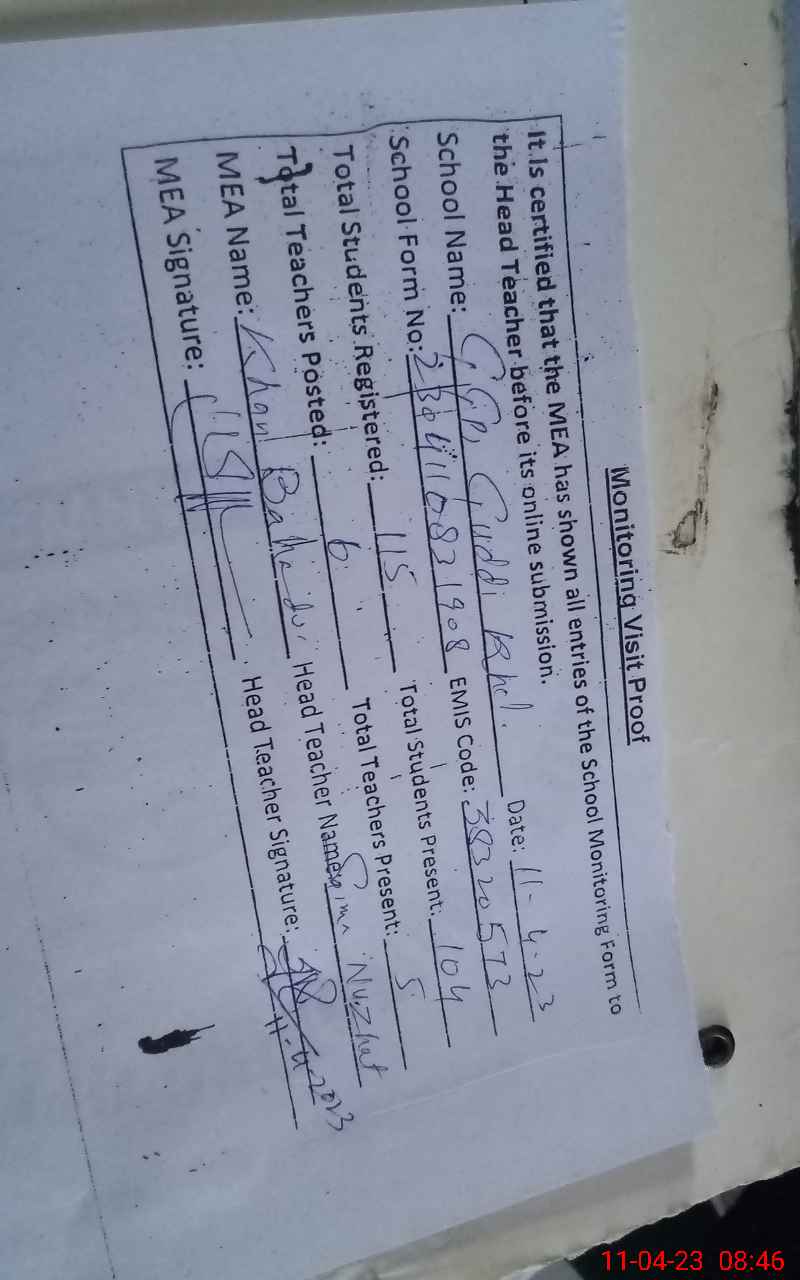 Monitoring Visit Proof
It Is certified that the MEA has shown all entries of the School Monitoring Form to
the Head Teacher before its online submission.
School Name: GGPS Guddi Khel. Date: 11-4-23
School Form No: 2304110831908 EMIS Code: 38320573
Total Students Registered: 115 Total Students Present: 104
Total Teachers Posted: 6 Total Teachers Present: 5
MEA Name: Khan Bahadur Head Teacher Name: Nuzhat
MEA Signature: Head Teacher Signature: 11-4-2023
11-04-23 08:46